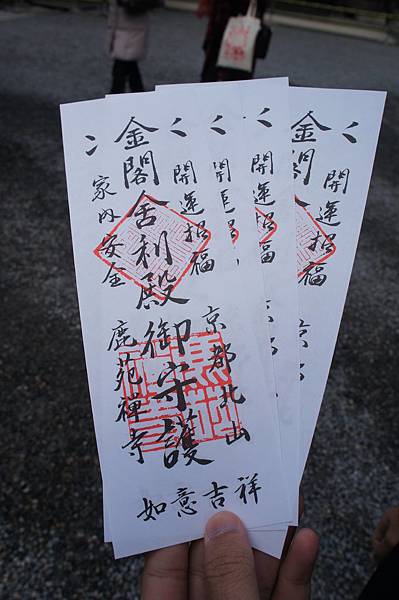 開運招福
金閣舎利殿御守護
家内安全
京都北山
鹿苑禅寺
如意吉祥
開
開運招福
金閣
開運招福